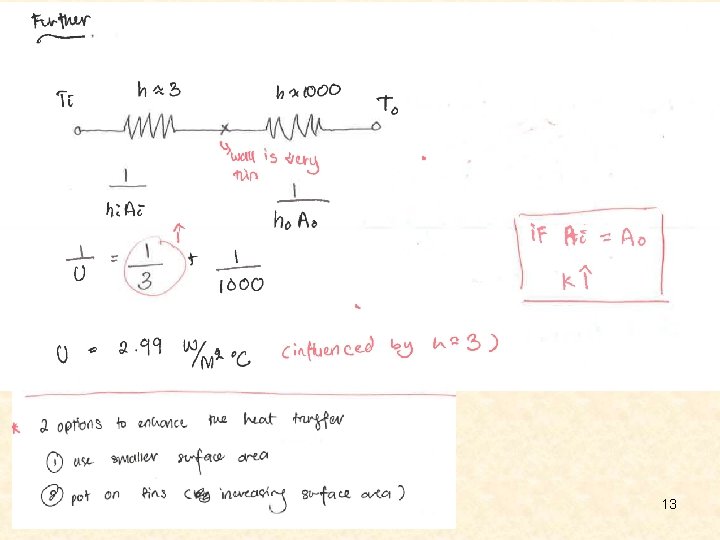 Further.
Ti h ≈ 3 h ≈ 1000 To
wall is very
thin
1/hiAi 1/hoAo
if Ai = Ao
k↑
1/U = 1/3 + 1/1000
U = 2.99 W/m² °C (influenced by h ≈ 3)
* 2 options to enhance the heat transfer
① use smaller surface area
② put on fins ( increasing surface area)
13